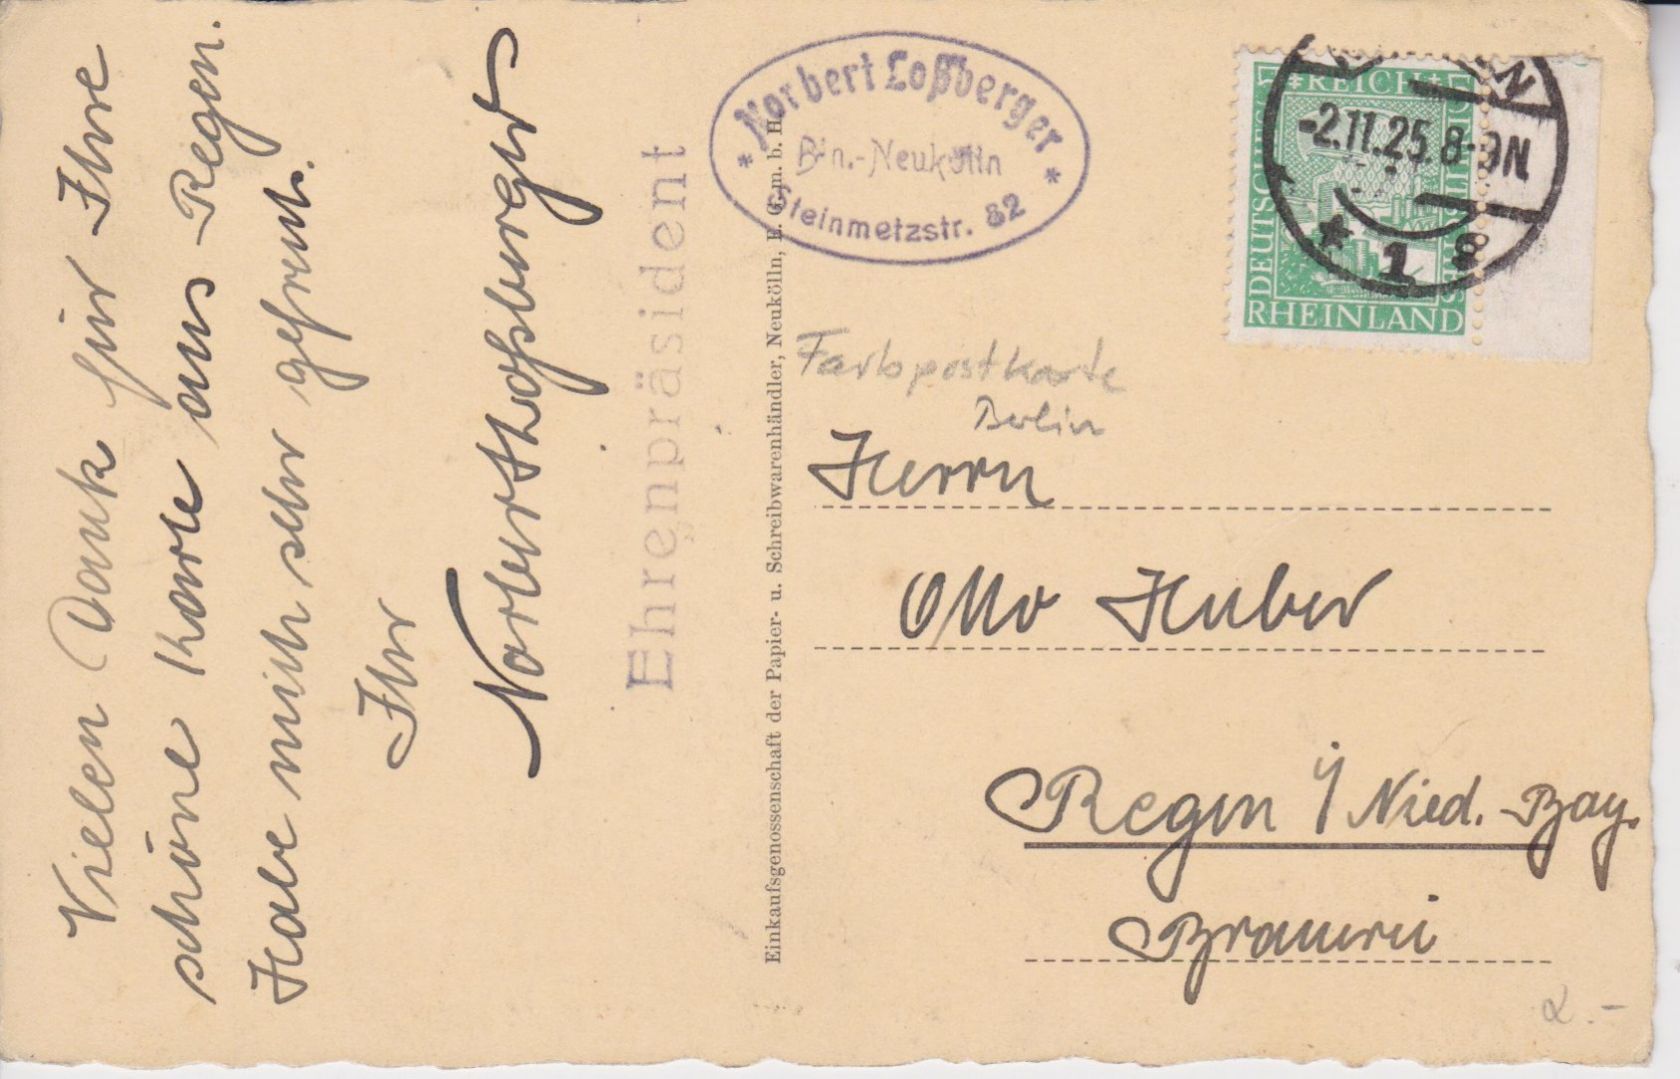 Vielen Dank für Ihre
schöne Karte aus Regen.
Habe mich sehr gefreut.
Ihr
Norbert Loßberger
Ehrenpräsident
Einkaufsgenossenschaft der Papier- u. Schreibwarenhändler, Neukölln, E. G. m. b. H.
* Norbert Loßberger *
Bln.-Neukölln
Steinmetzstr. 82
DEUTSCHES REICH
RHEINLAND
-2.11.25.8-9N
* 1
Farbpostkarte
Berlin
Herrn
Otto Huber
Regen i/ Nied.-Bay.
Brauerei
2.-